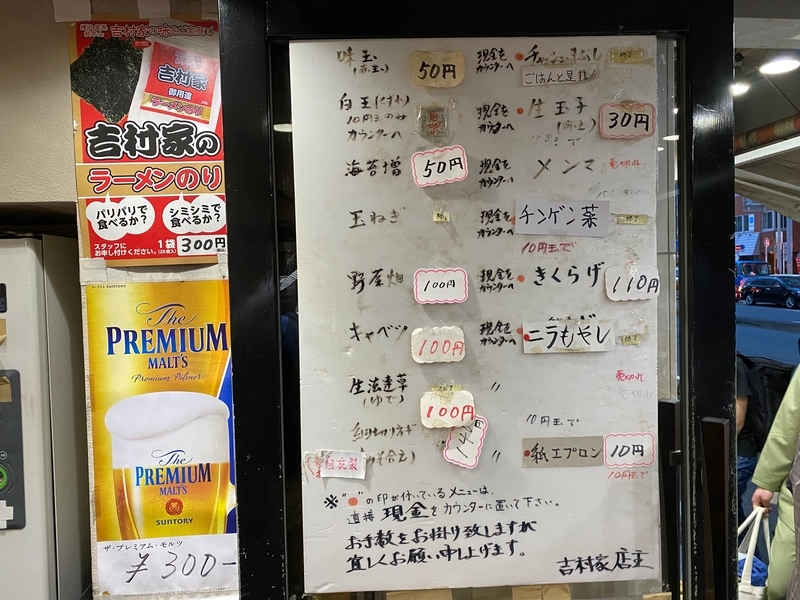 吉村家の味をご自宅で
吉村家
御用達
ラーメンのり
吉村家の
ラーメンのり
パリパリで
食べるか?
シミシミで
食べるか?
スタッフに
お申し付けください。
1袋 300円
The
PREMIUM
MALT'S
Premium Pilsner
The
PREMIUM
MALT'S
SUNTORY
ザ・プレミアム・モルツ
¥300-
味玉
50円
現金を
カウンターへ
終了
ごはんと是非
10円玉のみ
カウンターへ
現金を
カウンターへ
生玉子
30円
海苔増
50円
現金を
カウンターへ
メンマ
売切れ
玉ねぎ
終了
現金を
カウンターへ
チンゲン菜
終了
10円玉で
野菜畑
100円
現金を
カウンターへ
きくらげ
110円
キャベツ
100円
現金を
カウンターへ
ニラもやし
終了
(ゆで)
100円
〃
売切れ
自家製
〃
10円玉で
紙エプロン
10円
10円玉で
※"●"の印が付いているメニューは、
直接現金をカウンターに置いて下さい。
お手数をお掛け致しますが
宜しくお願い申し上げます。
吉村家 店主